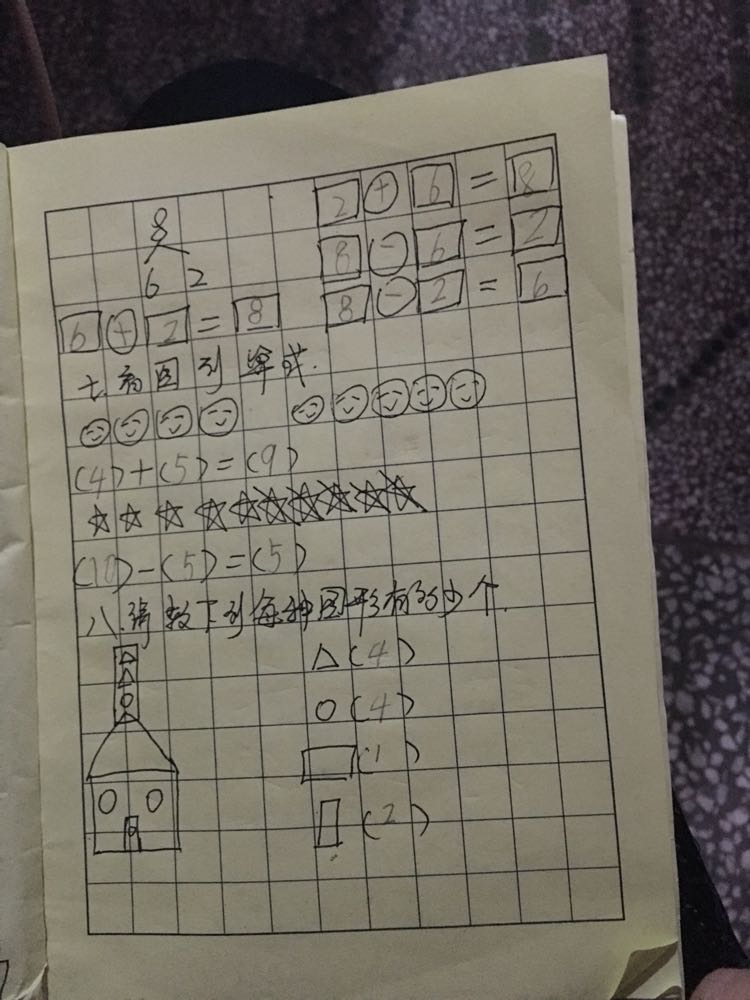 2 + 6 = 8
8
8 - 6 = 2
6 2
8 - 2 = 6
6 + 2 = 8
七.看图列算式.
(4)+(5)=(9)
(10)-(5)=(5)
八.请数下列每种图形有多少个.
△(4)
○(4)
▭(1)
▯(2)